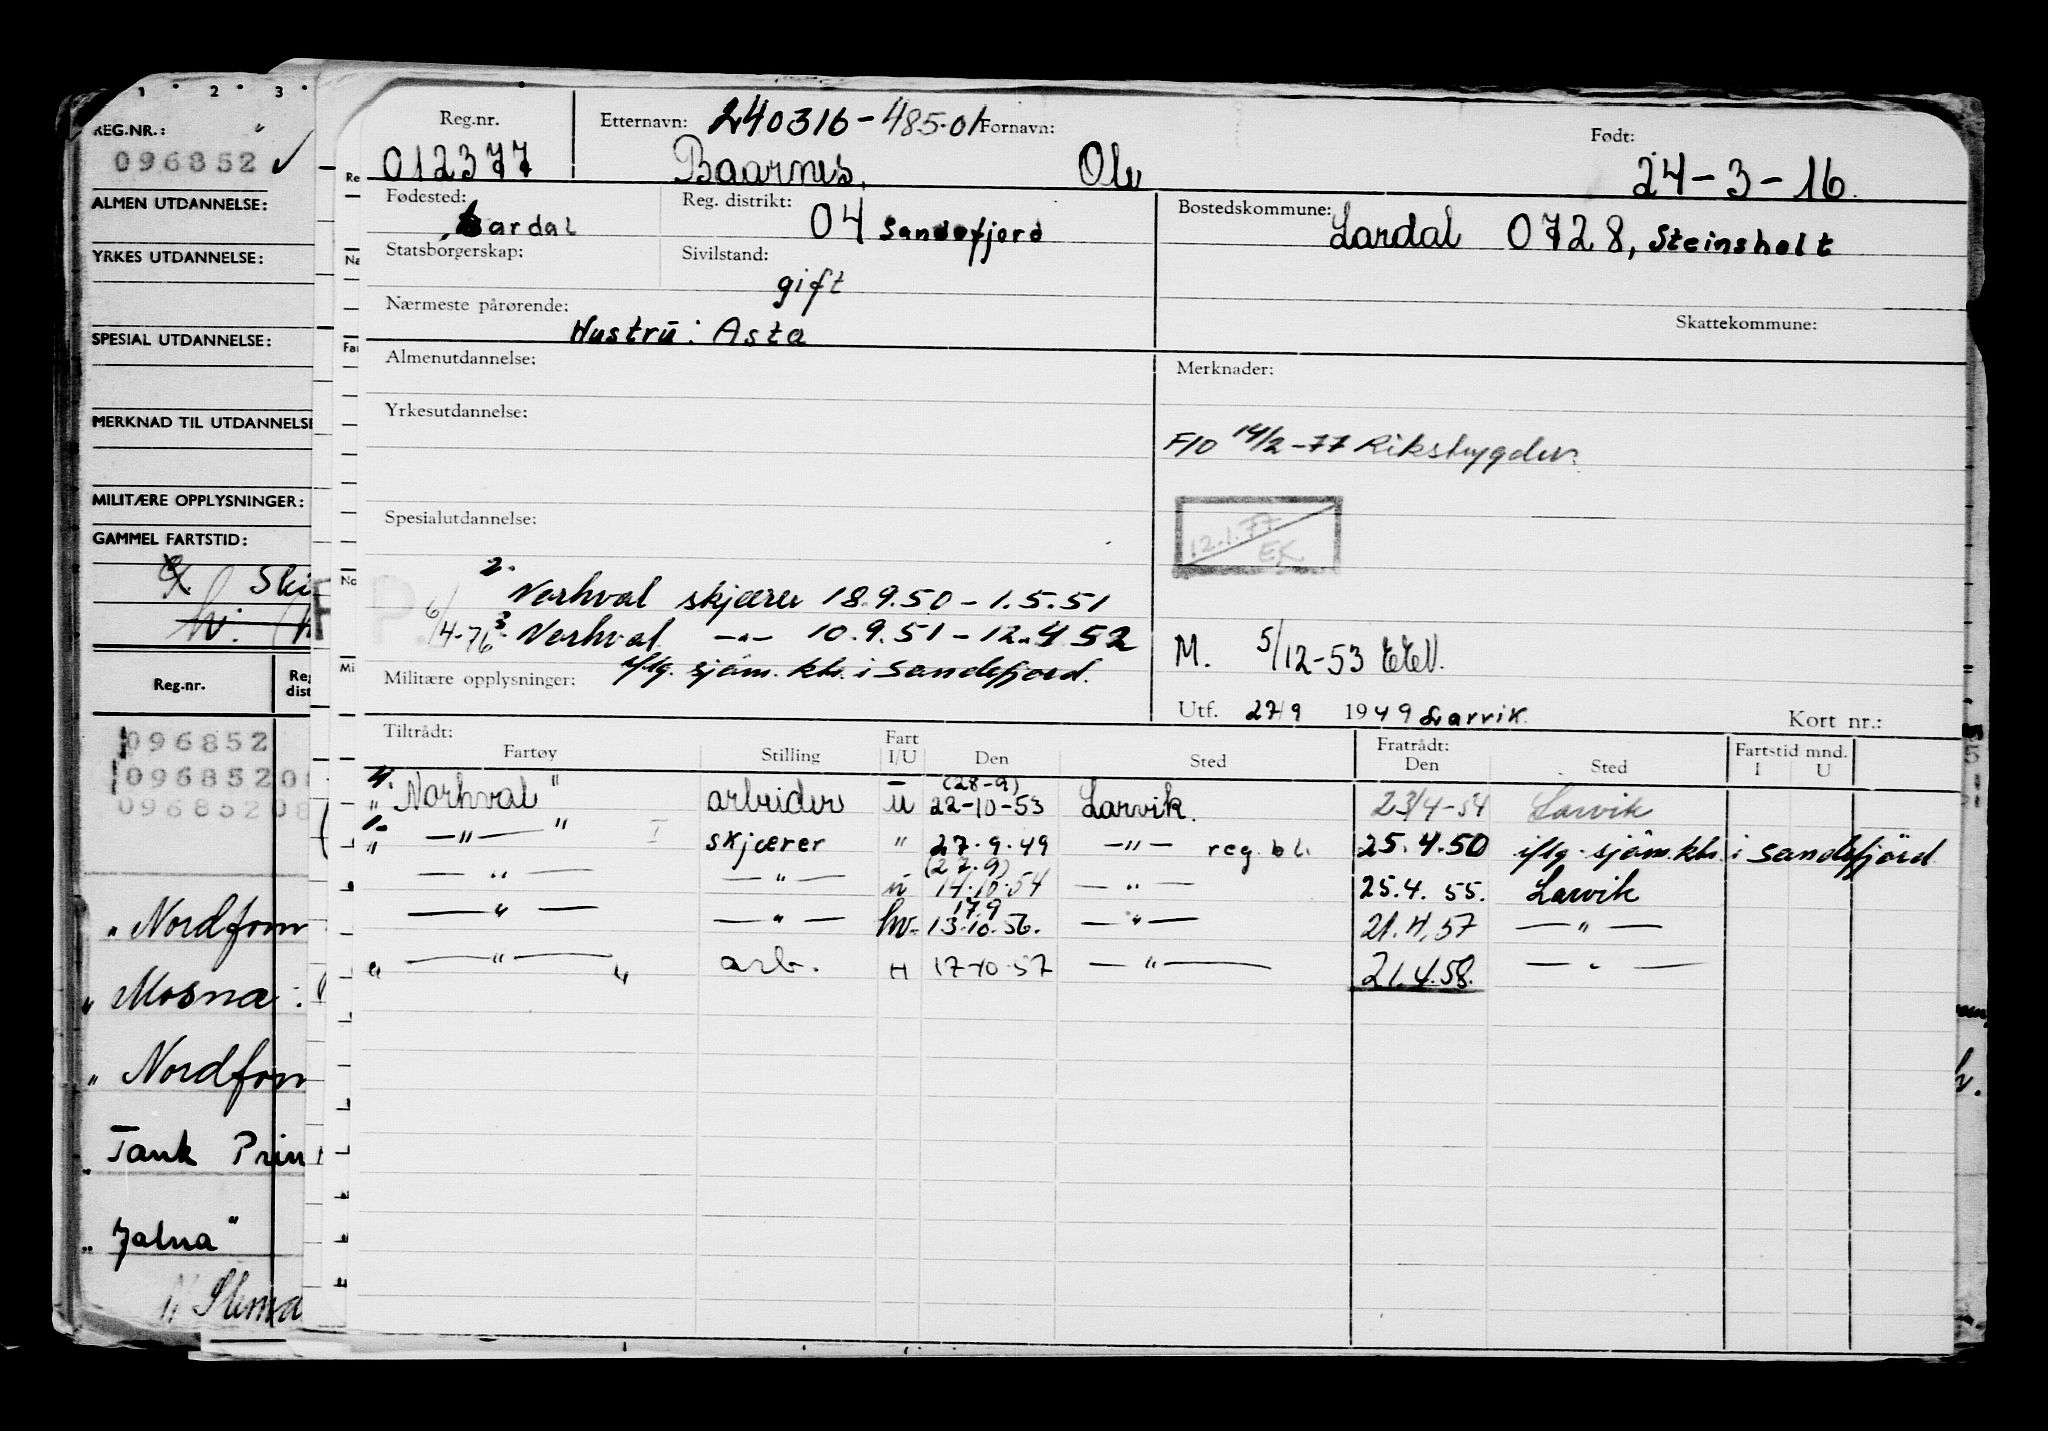 1 · 2 · 3 ·
REG.NR.:
096852 ✓
ALMEN UTDANNELSE:
YRKES UTDANNELSE:
SPESIAL UTDANNELSE:
MERKNAD TIL UTDANNELSE
MILITÆRE OPPLYSNINGER:
GAMMEL FARTSTID:
Ski
hv.
Reg.nr. Reg dist
096852
09685208
09685208
"Nordfonn
"Mosna
"Nordfonn
"Tank Prin
"Jalna"
" Stema
Reg.nr. Etternavn: 240316-485.01 Fornavn: Født:
012377 Baarnes, Olv 24-3-16.
Fødested: Lardal
Reg. distrikt: 04 Sandefjord
Bostedskommune: Lardal 0728, Steinsholt
Statsborgerskap:
Sivilstand: gift
Nærmeste pårørende: Hustru: Asta
Skattekommune:
Almenutdannelse:
Merknader:
Yrkesutdannelse:
F/O 14/2-77 Rikstrygdev.
Spesialutdannelse:
12.1.77
EK
2. Norhval skjærer 18.9.50 - 1.5.51
6/4-76 3. Norhval -"- 10.9.51 - 12.4 52
iflg. sjøm. ktr. i Sandefjord.
M. 5/12-53 EEN.
Militære opplysninger:
Utf. 27/9 1949 Larvik. Kort nr.:
Tiltrådt: Fartøy Stilling Fart I/U Den Sted Fratrådt: Den Sted Fartstid mnd. I U
4. "Norhval" arbeider u (28-9) 22-10-53 Larvik. 23/4-54 Larvik
1. " -"- " I skjærer " 27.9.49 -"- reg. bl. 25.4.50 iflg. sjøm.ktr. i Sandefjord
-"- -"- u (27.9) 14.10.54 -"- 25.4.55. Larvik
-"- -"- hv. 17.9 13.10.56. -"- 21.4.57 -"-
" -"- " arb. H 17-10-57 -"- 21.4.58. -"-